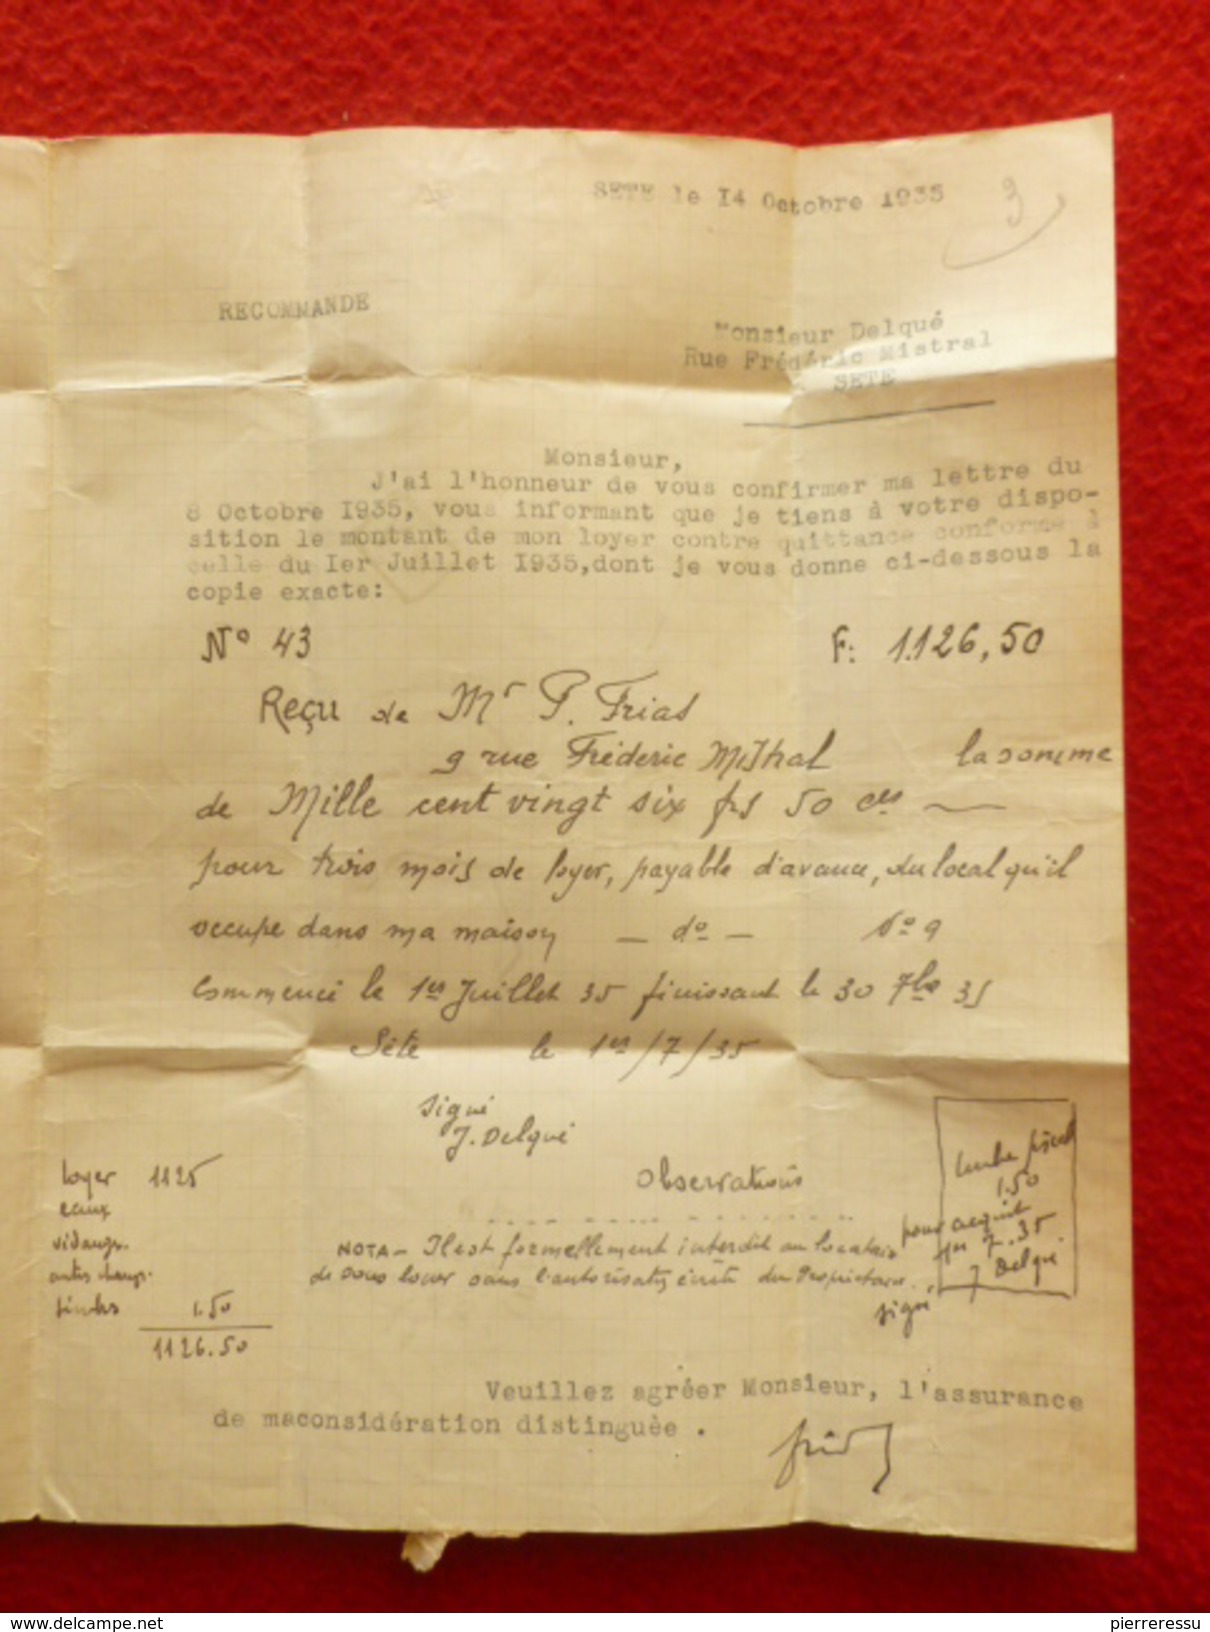 SETE le I4 Octobre I935
3
RECOMMANDE
Monsieur Delqué
Rue Frédéric Mistral
SETE
Monsieur,
J'ai l'honneur de vous confirmer ma lettre du
8 Octobre I935, vous informant que je tiens à votre dispo-
sition le montant de mon loyer contre quittance conforme à
celle du Ier Juillet I935,dont je vous donne ci-dessous la
copie exacte:
N° 43 F: 1.126,50
Reçu de Mr P. Frias
9 rue Fréderic Mistral la somme
de Mille cent vingt six frs 50 ces
pour trois mois de loyer, payable d'avance, du local qu'il
occupe dans ma maison — do — No 9
Commencé le 1er Juillet 35 finissant le 30 7bre 35
Sète le 1er/7/35
Signé
J. Delqué
loyer 1125
eaux
vidange.
autres charges.
timbres 1.50
1126.50
Observations
NOTA - Il est formellement interdit au locataire
de sous louer sans l'autorisation écrite du Propriétaire.
timbre fiscal
1.50
pour acquit
1er 7.35
J Delqué
signé
Veuillez agréer Monsieur, l'assurance
de maconsidération distinguèe .
delcampe.net
pierreressu